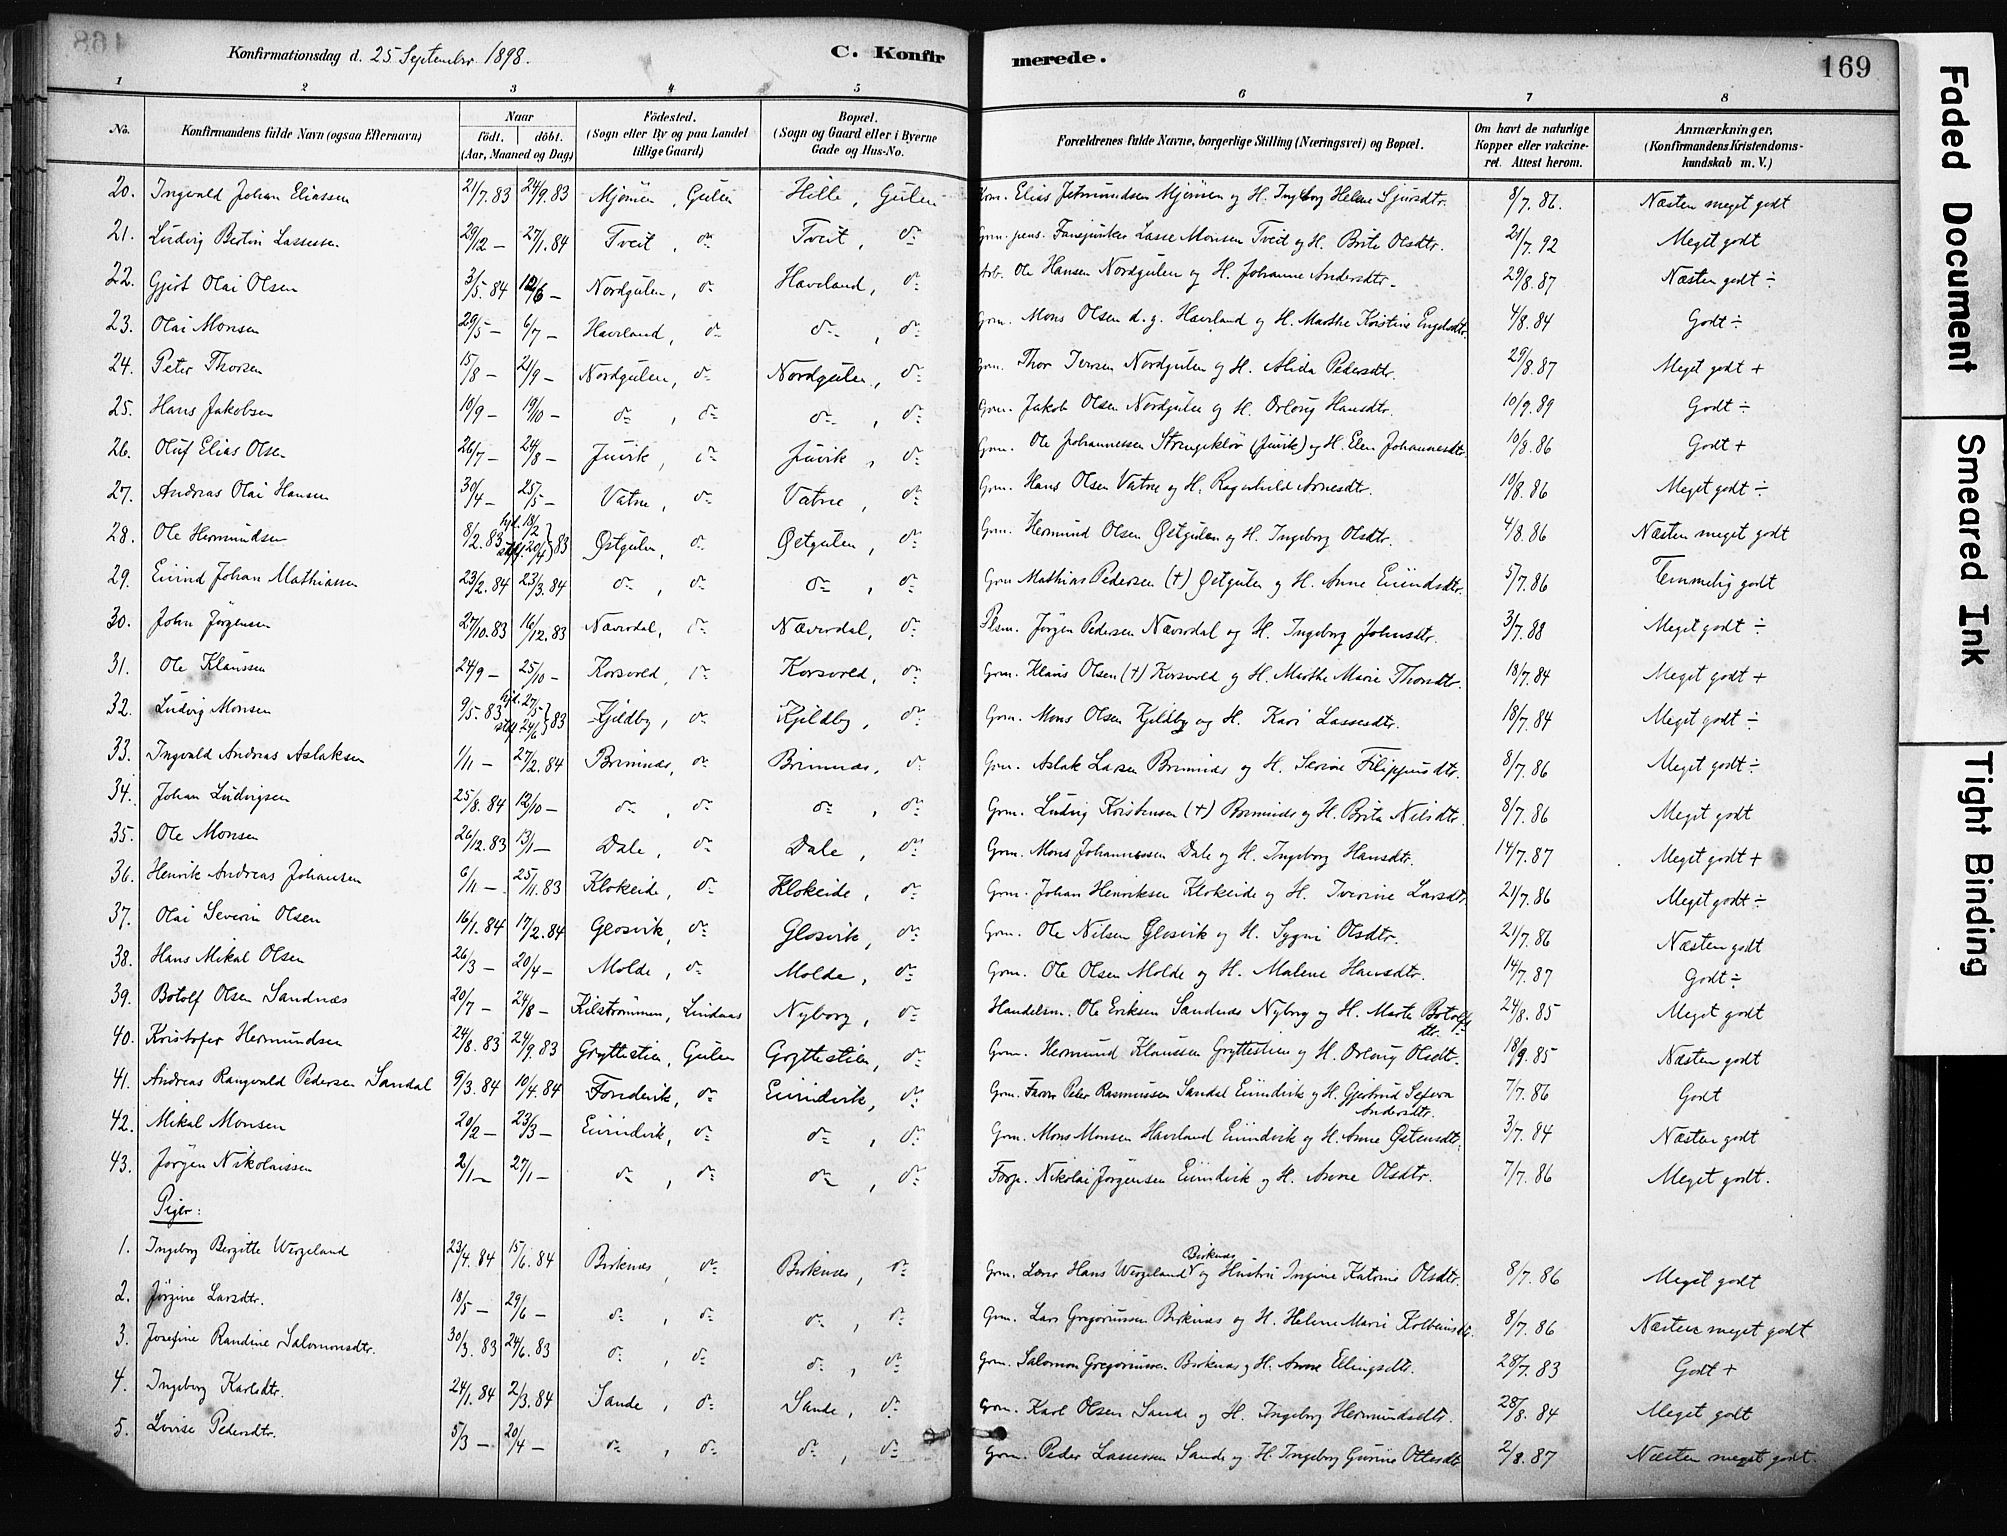 Konfirmationsdag d. 25 September 1898.
C. Konfir
merede.
169
1 2 3 4 5 6 7 8
No. Konfirmandens fulde Navn (ogsaa Efternavn) Naar födt. döbt. (Aar, Maaned og Dag) Födested. (Sogn eller By og paa Landet tillige Gaard) Bopæl. (Sogn og Gaard eller i Byerne Gade og Hus-No. Forældrenes fulde Navne, borgerlige Stilling (Næringsvei) og Bopæl. Om havt de naturlige Kopper eller vakcineret. Attest herom. Anmærkninger. (Konfirmandens Kristendomskundskab m. V.)
20. Ingvald Johan Eliassen 21/7.83 24/9.83 Mjömen, Gulen Hille, Gulen Grm. Elias Jetmundsen Mjömen og H. Ingeborg Helene Sjursdtr. 8/7.86. Næsten meget godt
21. Ludvig Bertin Lassessen 29/12 — 27/1.84 Tveit, do Tveit, do Grm. pens. Fanejunker Lasse Monsen Tveit og H. Brite Olsdtr. 21/7.92 Meget godt
22. Gjert Olai Olsen 3/5.84 12/6 — Nordgulen, do Haveland, do Arb. Ole Hansen Nordgulen og H. Johanne Andersdtr. 29/8.87 Næsten godt ÷
23. Olai Monsen 29/5 — 6/7 — Haveland, do do, do Grm. Mons Olsen d.y. Haveland og H. Marthe Kristine Engelsdtr. 4/8.84 Godt ÷
24. Peter Thorsen 15/8 — 21/9 — Nordgulen, do Nordgulen, do Grm. Thor Iversen Nordgulen og H. Alida Pedersdtr. 29/8.87 Meget godt +
25. Hans Jakobsen 10/9 — 19/10 — do, do do, do Grm. Jakob Olsen Nordgulen og H. Orloug Hansdtr. 10/9.89 Godt ÷
26. Oluf Elias Olsen 26/7 — 24/8 — Juvik, do Juvik, do Grm. Ole Johannessen (Juvik) og H. Elen Johannesdtr. 10/8.86 Godt +
27. Andreas Olai Hansen 30/4 — 25/5 — Vatne, do Vatne, do Grm. Hans Olsen Vatne og H. Ragnhild Arnesdtr. 10/8.86 Meget godt ÷
28. Ole Hermundsen 8/2.83 hjd. 18/2 stf. 20/4 } 83 Østgulen, do Østgulen, do Grm. Hermund Olsen Østgulen og H. Ingeborg Olsdtr. 4/8.86 Næsten meget godt
29. Eiind Johan Mathiassen 23/2.84 23/3.84 do, do do, do Grm. Mathias Pedersen (†) Østgulen og H. Anne Eiindsdtr. 5/7.86 Temmelig godt
30. John Jörgensen 27/10.83 16/12.83 Nævrdal, do Nævrdal, do Plsm. Jörgen Pedersen Nævrdal og H. Ingeborg Johnsdtr. 3/7.88 Meget godt ÷
31. Ole Klaussen 24/9 — 25/10 — Korsvold, do Korsvold, do Grm. Klaus Olsen (†) Korsvold og H. Marthe Marie Thorsdtr. 18/7.84 Meget godt +
32. Ludvig Monsen 9/5.83 hjd. 27/5 stf. 24/6 } 83 Kjeldby, do Kjeldby, do Grm. Mons Olsen Kjeldby og H. Kari Lassesdtr. 18/7.84 Meget godt ÷
33. Ingvald Andreas Aslaksen 1/11 — 27/2.84 Brimnæs, do Brimnæs, do Grm. Aslak Larsen Brimnæs og H. Serine Filippusdtr. 8/7.86 Meget godt ÷
34. Johan Ludvigsen 25/8.84 12/10 — do, do do, do Grm. Ludvig Kristensen (†) Brimnæs og H. Brita Nilsdtr. 8/7.86 Meget godt
35. Ole Monsen 26/12.83 13/1 — Dale, do Dale, do Grm. Mons Johannessen Dale og H. Ingeborg Hansdtr. 14/7.87 Meget godt +
36. Henrik Andreas Johansen 6/11 — 25/11.83 Klokeide, do Klokeide, do Grm. Johan Henriksen Klokeide og H. Iverine Larsdtr. 21/7.86 Meget godt ÷
37. Olai Severin Olsen 16/1.84 17/2.84 Glosvik, do Glosvik, do Grm. Ole Nilsen Glosvik og H. Sygni Olsdtr. 21/7.86 Næsten godt
38. Hans Mikal Olsen 26/3 — 20/4 — Molde, do Molde, do Grm. Ole Olsen Molde og H. Malene Hansdtr. 14/7.87 Godt ÷
39. Botolf Olsen Sandnæs 20/7 — 24/8 — Kilströmmen, Lindaas Nyborg, do Handelsm. Ole Eriksen Sandnæs Nyborg og H. Marte Botolfsdtr. 24/8.85 Meget godt
40. Kristofer Hermundsen 24/8.83 24/9.83 Gryttestien, Gulen Gryttestien, do Grm. Hermund Klaussen Gryttestien og H. Orloug Olsdtr. 18/9.85 Næsten godt
41. Andreas Rangvald Pedersen Sandal 9/3.84 10/4.84 Fondevik, do Eiindvik, do Grm. Farver Peter Rasmussen Sandal Eiindvik og H. Gjertrud Andersdtr. 7/7.86 Godt
42. Mikal Monsen 20/2 — 23/3 — Eiindvik, do do, do Grm. Mons Monsen Haveland Eiindvik og H. Anne Østensdtr. 3/7.84 Næsten godt
43. Jörgen Nikolaissen 2/1 — 27/1 — do, do do, do Forp. Nikolai Jörgensen Eiindvik og H. Anne Olsdtr. 7/7.86 Meget godt.
Piger:
1. Ingeborg Bergitte Wergeland 23/4.84 15/6.84 Birknæs, do Birknæs, do Grm. Lærer Hans Wergeland Birknæs og Hustru Ingine Katrine Olsdtr. 8/7.86 Meget godt
2. Jörgine Larsdtr. 18/5 — 29/6 — do, do do, do Grm. Lars Gregoriussen Birknæs og H. Helene Marie Kolbeinsdtr. 8/7.86 Næsten meget godt
3. Josefine Randine Salomonsdtr. 30/3.83 24/6.83 do, do do, do Grm. Salomon Gregoriussen Birknæs og H. Anne Ellingsdtr. 28/7.83 Godt +
4. Ingeborg Karlsdtr. 24/1.84 2/3.84 Sande, do Sande, do Grm. Karl Olsen Sande og H. Ingeborg Hermundsdtr. 28/8.84 Meget godt
5. Lovise Pedersdtr. 5/3 — 20/4 — do, do do, do Grm. Peder Lassessen Sande og H. Ingeborg Gurine Ottesdtr. 2/8.87 Næsten meget godt.
Faded Document
Smeared Ink
Tight Binding